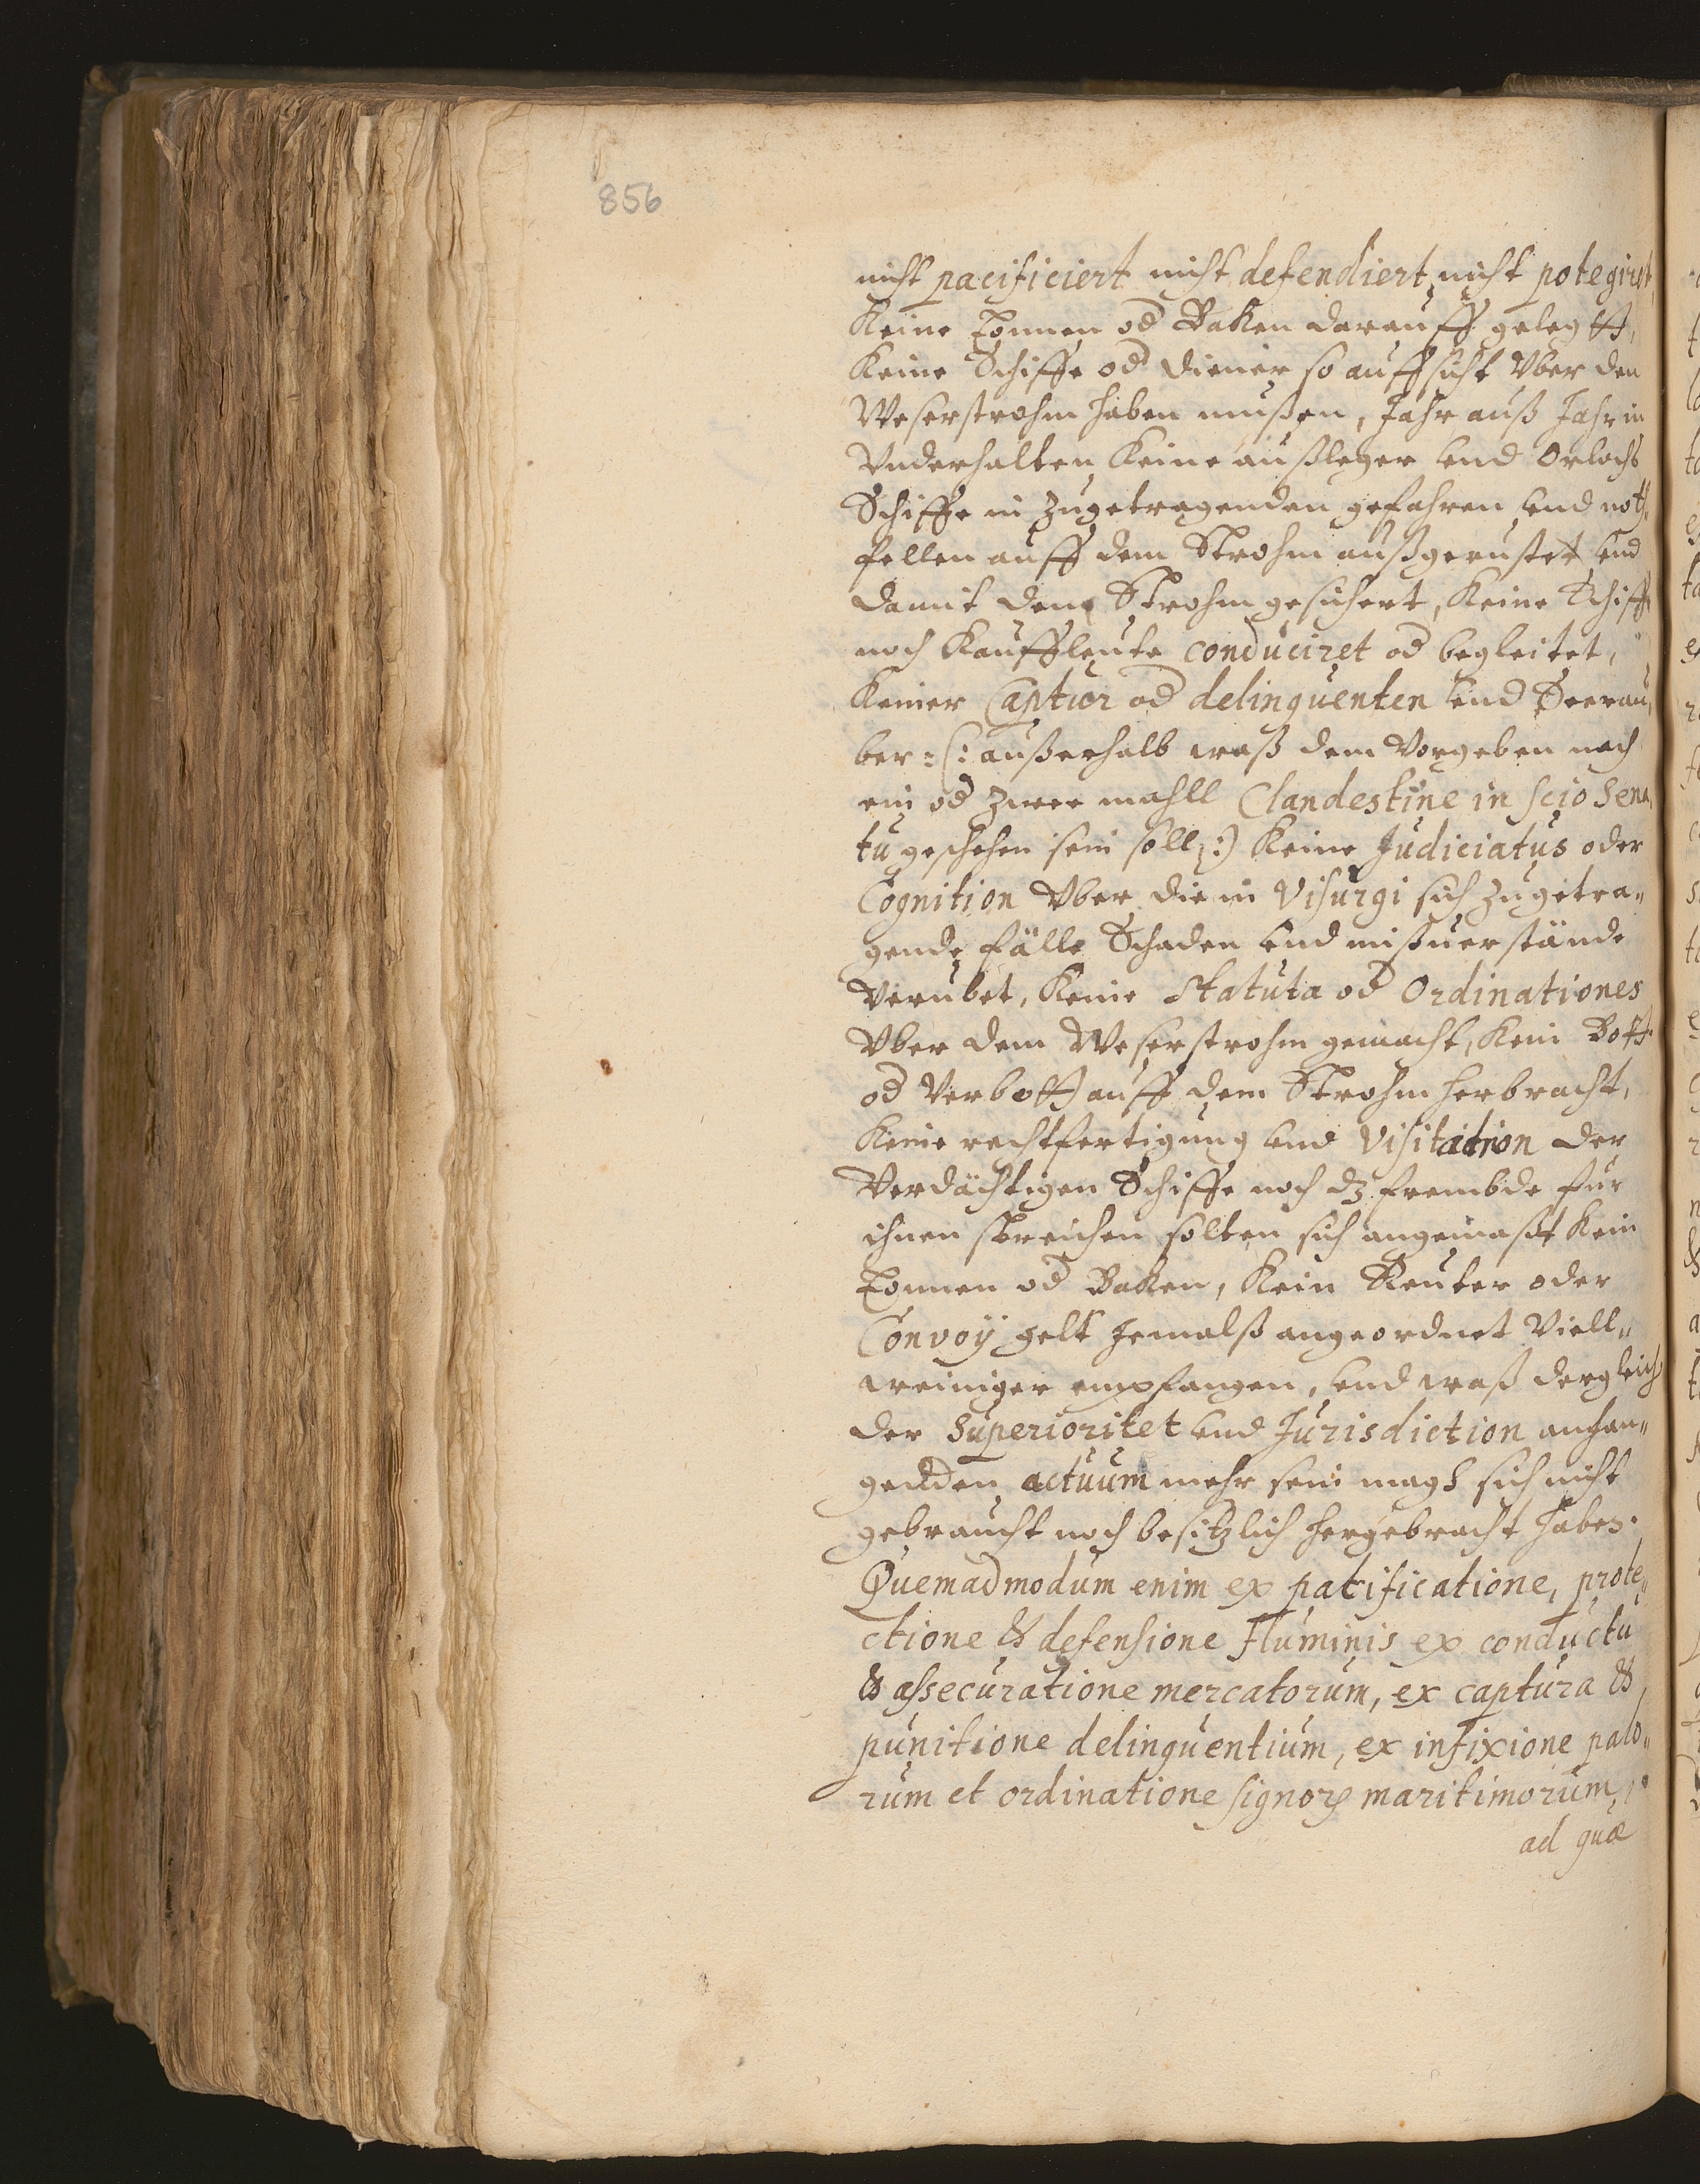 856
nicht pacificiert nicht defendiert, nicht potegiret,
Keine Tonnen od Baken darauff gelegtt,
Keine Schiffe od Diener so auffsicht Vber den
Weserstrohm haben mußen, Jahr auß Jahr in
Vnderhalten Keine außleger vnd Orlochs
Schiffe in zugetragenden gefahren vnd noth,
fellen auff dem Strohm außgerustet vnd
damit den Strohm gesichert, Keine Schiff
noch Kauffleute conduciret od begleitet,
Keiner Captur od delinquenten vnd Seerau,
ber :(: außerhalb waß dem Vorgeben nach
ein od zwee mahll Clandestine in scio Sena,
tu geschehen sein soll :) Keine Judiciatus oder
Cognition Vber die in Visurgi sich zugetra„
gende fälle Schaden vnd mißuerstände
Verubet, Keine Statuta od Ordinationes
Vber dem Weserstrohm gemacht, Kein Bott
od Verbott auff dem Strohm herbracht,
Keine rechtfertigung vnd Visitation der
Verdächtigen Schiffe noch dz frembde fur
ihnen streichen solten sich angemaßt Kein
Tonnen od Baken, Kein Reuter oder
Convoÿ gelt Jemalß angeordnet Viell„
weiniger empfangen, vnd waß dergleich
der Superioritet vnd Jurisdiction anhan„
genden actuum mehr sein magh sich nicht
gebraucht noch besitzlich hergebracht haben.
Quemadmodum enim ex patificatione, prote„
ctione & defensione Fluminis ex conductu
& assecuratione mercatorum, ex captura &
punitione delinquentium, ex infixione palo„
rum et ordinatione signorꝝ maritimorum,
ad quæ